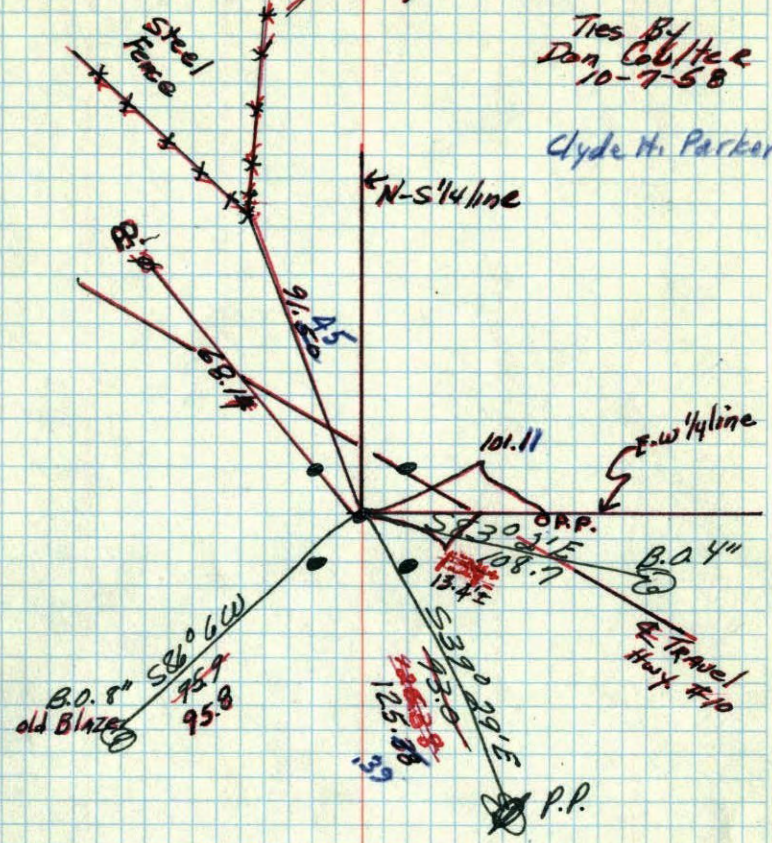 Ties By
Don Coulter
10-7-58
Clyde H. Parker
Steel
Fence
N-S 1/4 line
8"
91.50
45
68.14
101.11
E-W 1/4 line
P.P.
S83° 2'E
108.7
B.O. 4"
13.4±
℄ Travel
Hwy. #10
S86° 6 W
95.9
95.8
B.O. 8"
old Blaze
S39° 29' E
93.0
125.38
.39
P.P.